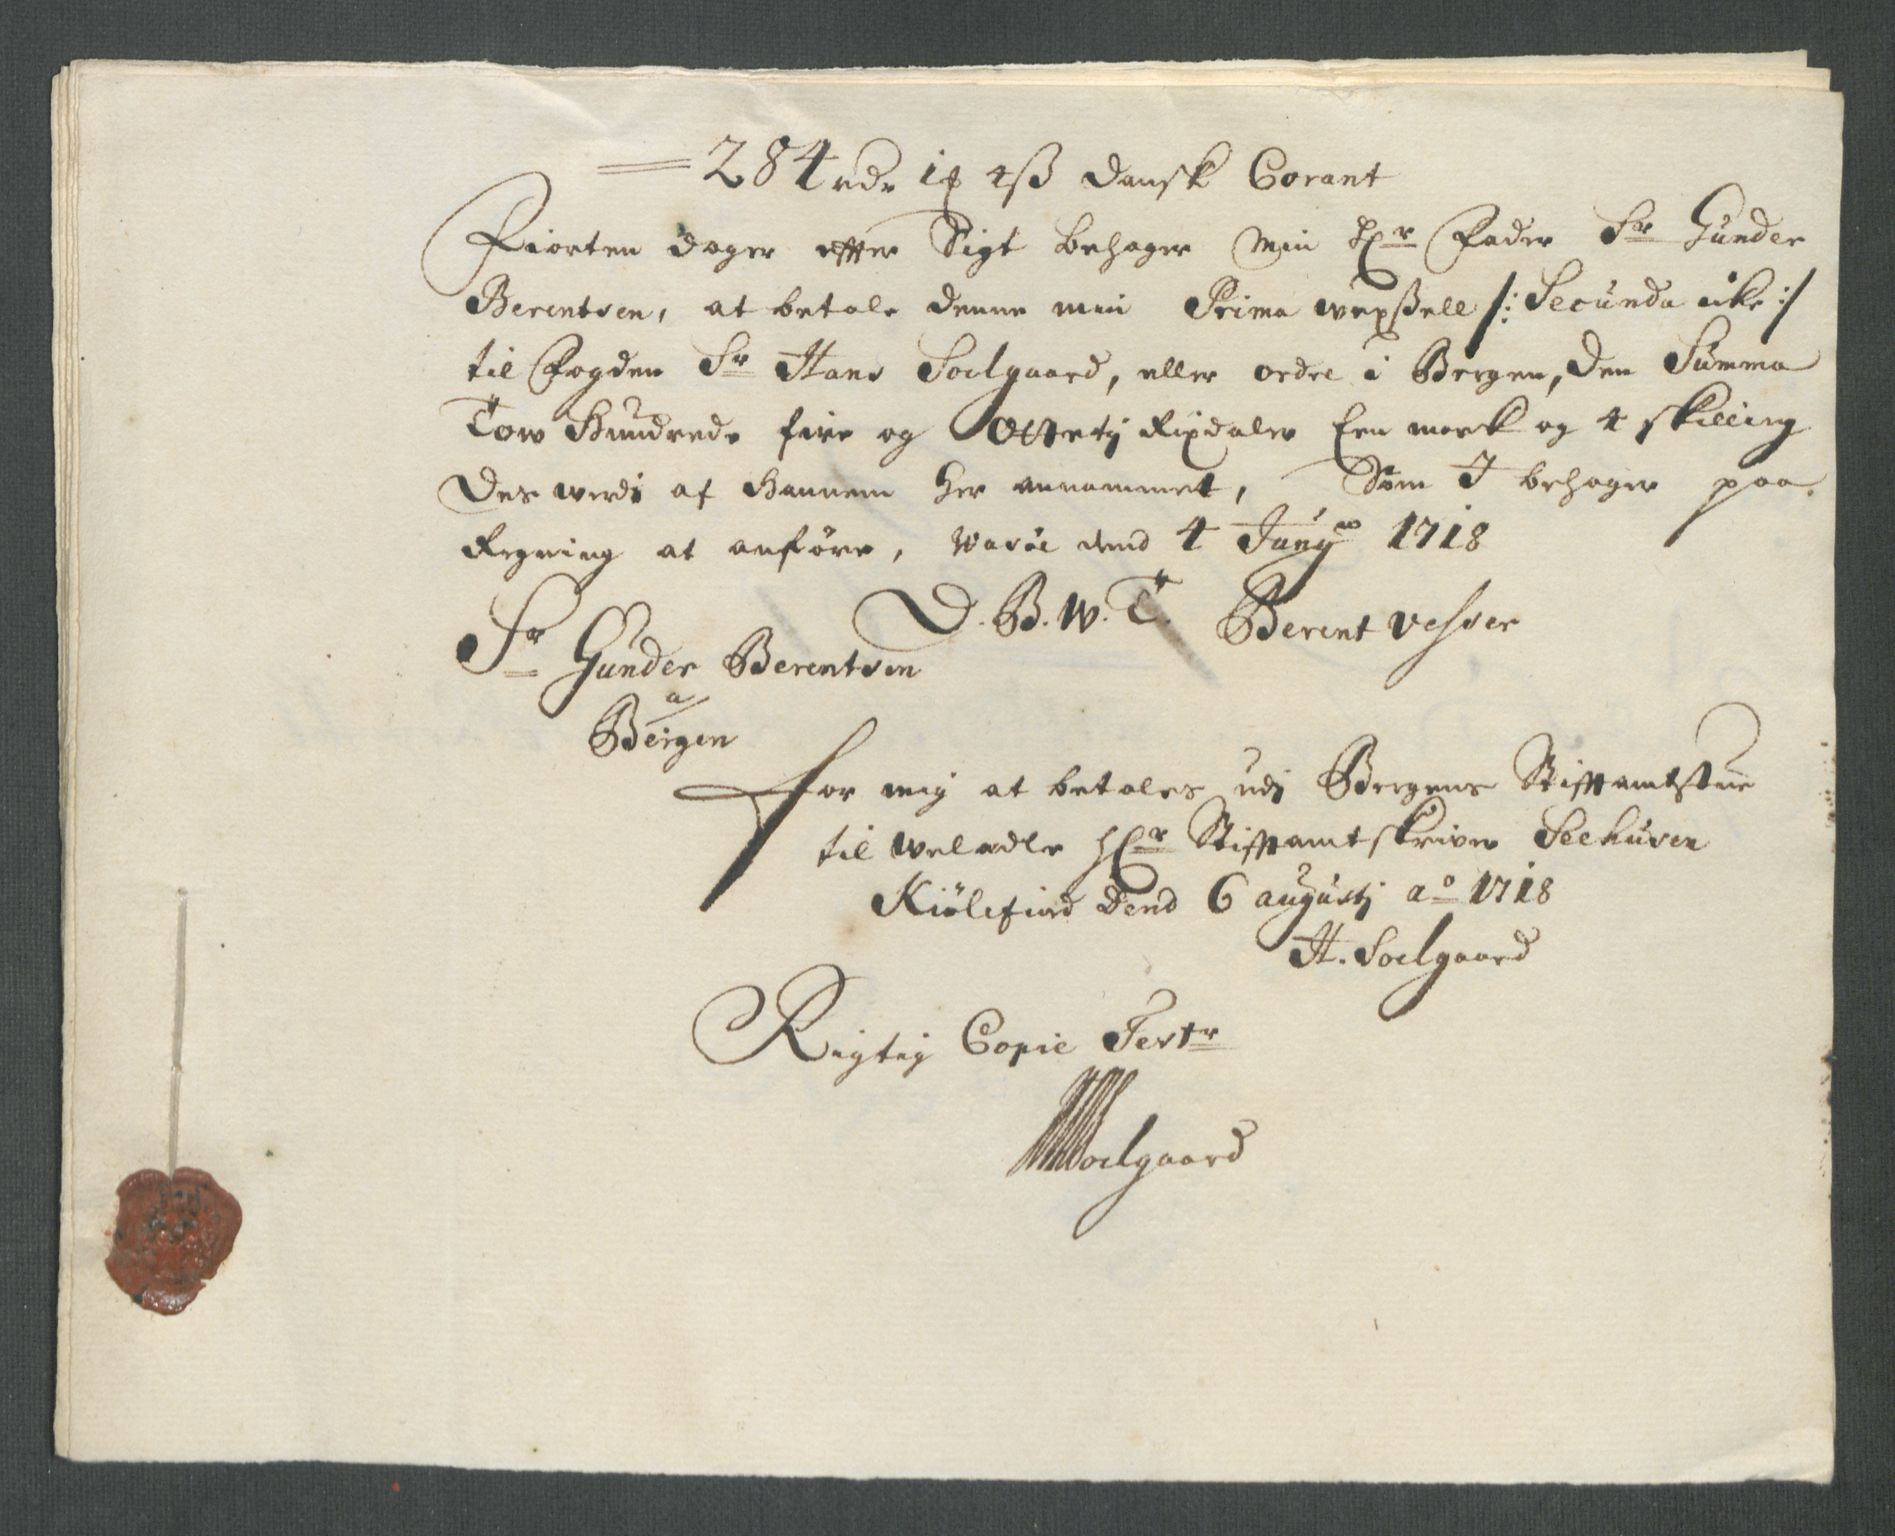 284 rdr 1 ₰ 4 ß Dansk Corant
Fiorten dager effter Sigt behager Min Hr Fader Sr Gunder
Berentsen, at betale denne min Prima wexßell /: Secunda ike :/
til Fogden Sr Hans Soelgaard, eller ordre i Bergen, den Summa
Tow Hundrede fire og Ottetij Rixdaler Een mark og 4 skilling
des werdi af Hannem her annammet, Som I behager paa
Regning at anföre, Wasöe dend 4 Junij 1718
D. B. W. T. Berent Vesser
Sr Gunder Berentsen
a/
Bergen
for mig at betales udj Bergens Stifftamtstue
til welædle Hr Stifftamtskriver Seehusen
Kiölefiord Dend 6 augustj ao 1718
H. Soelgaard
Rigtig Copie Tester
HSoelgaard